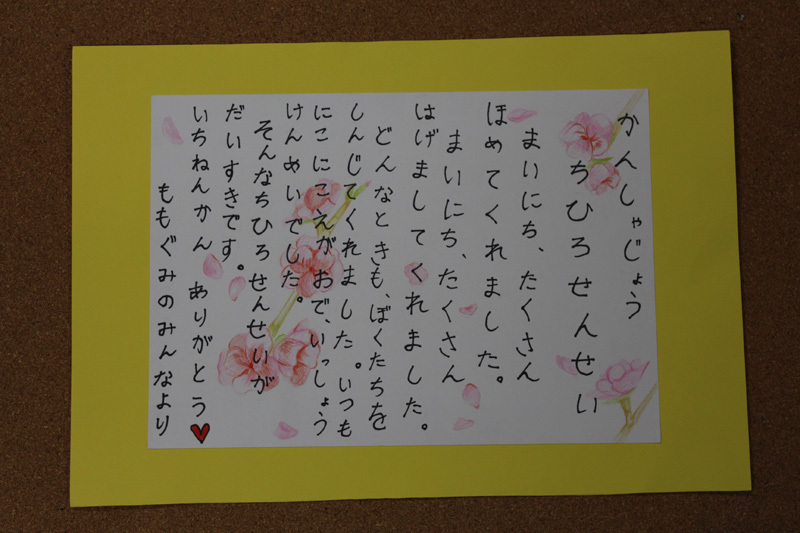 かんしゃじょう
ちひろせんせい
まいにち、たくさん
ほめてくれました。
まいにち、たくさん
はげましてくれました。
どんなときも、ぼくたちを
しんじてくれました。いつも
にこにこえがおで、いっしょう
けんめいでした。
そんなちひろせんせいが
だいすきです。
いちねんかん ありがとう♥
ももぐみのみんなより